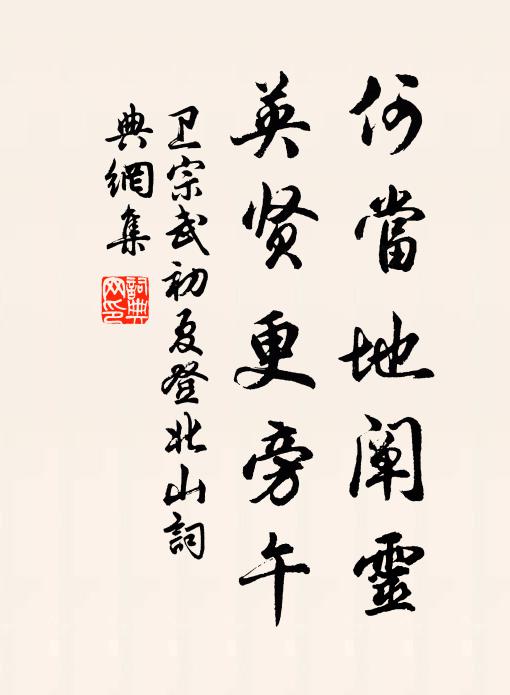 何當地阐靈
英贤更旁午
卫宗武初夏登北山詞
典網集
詞典网印